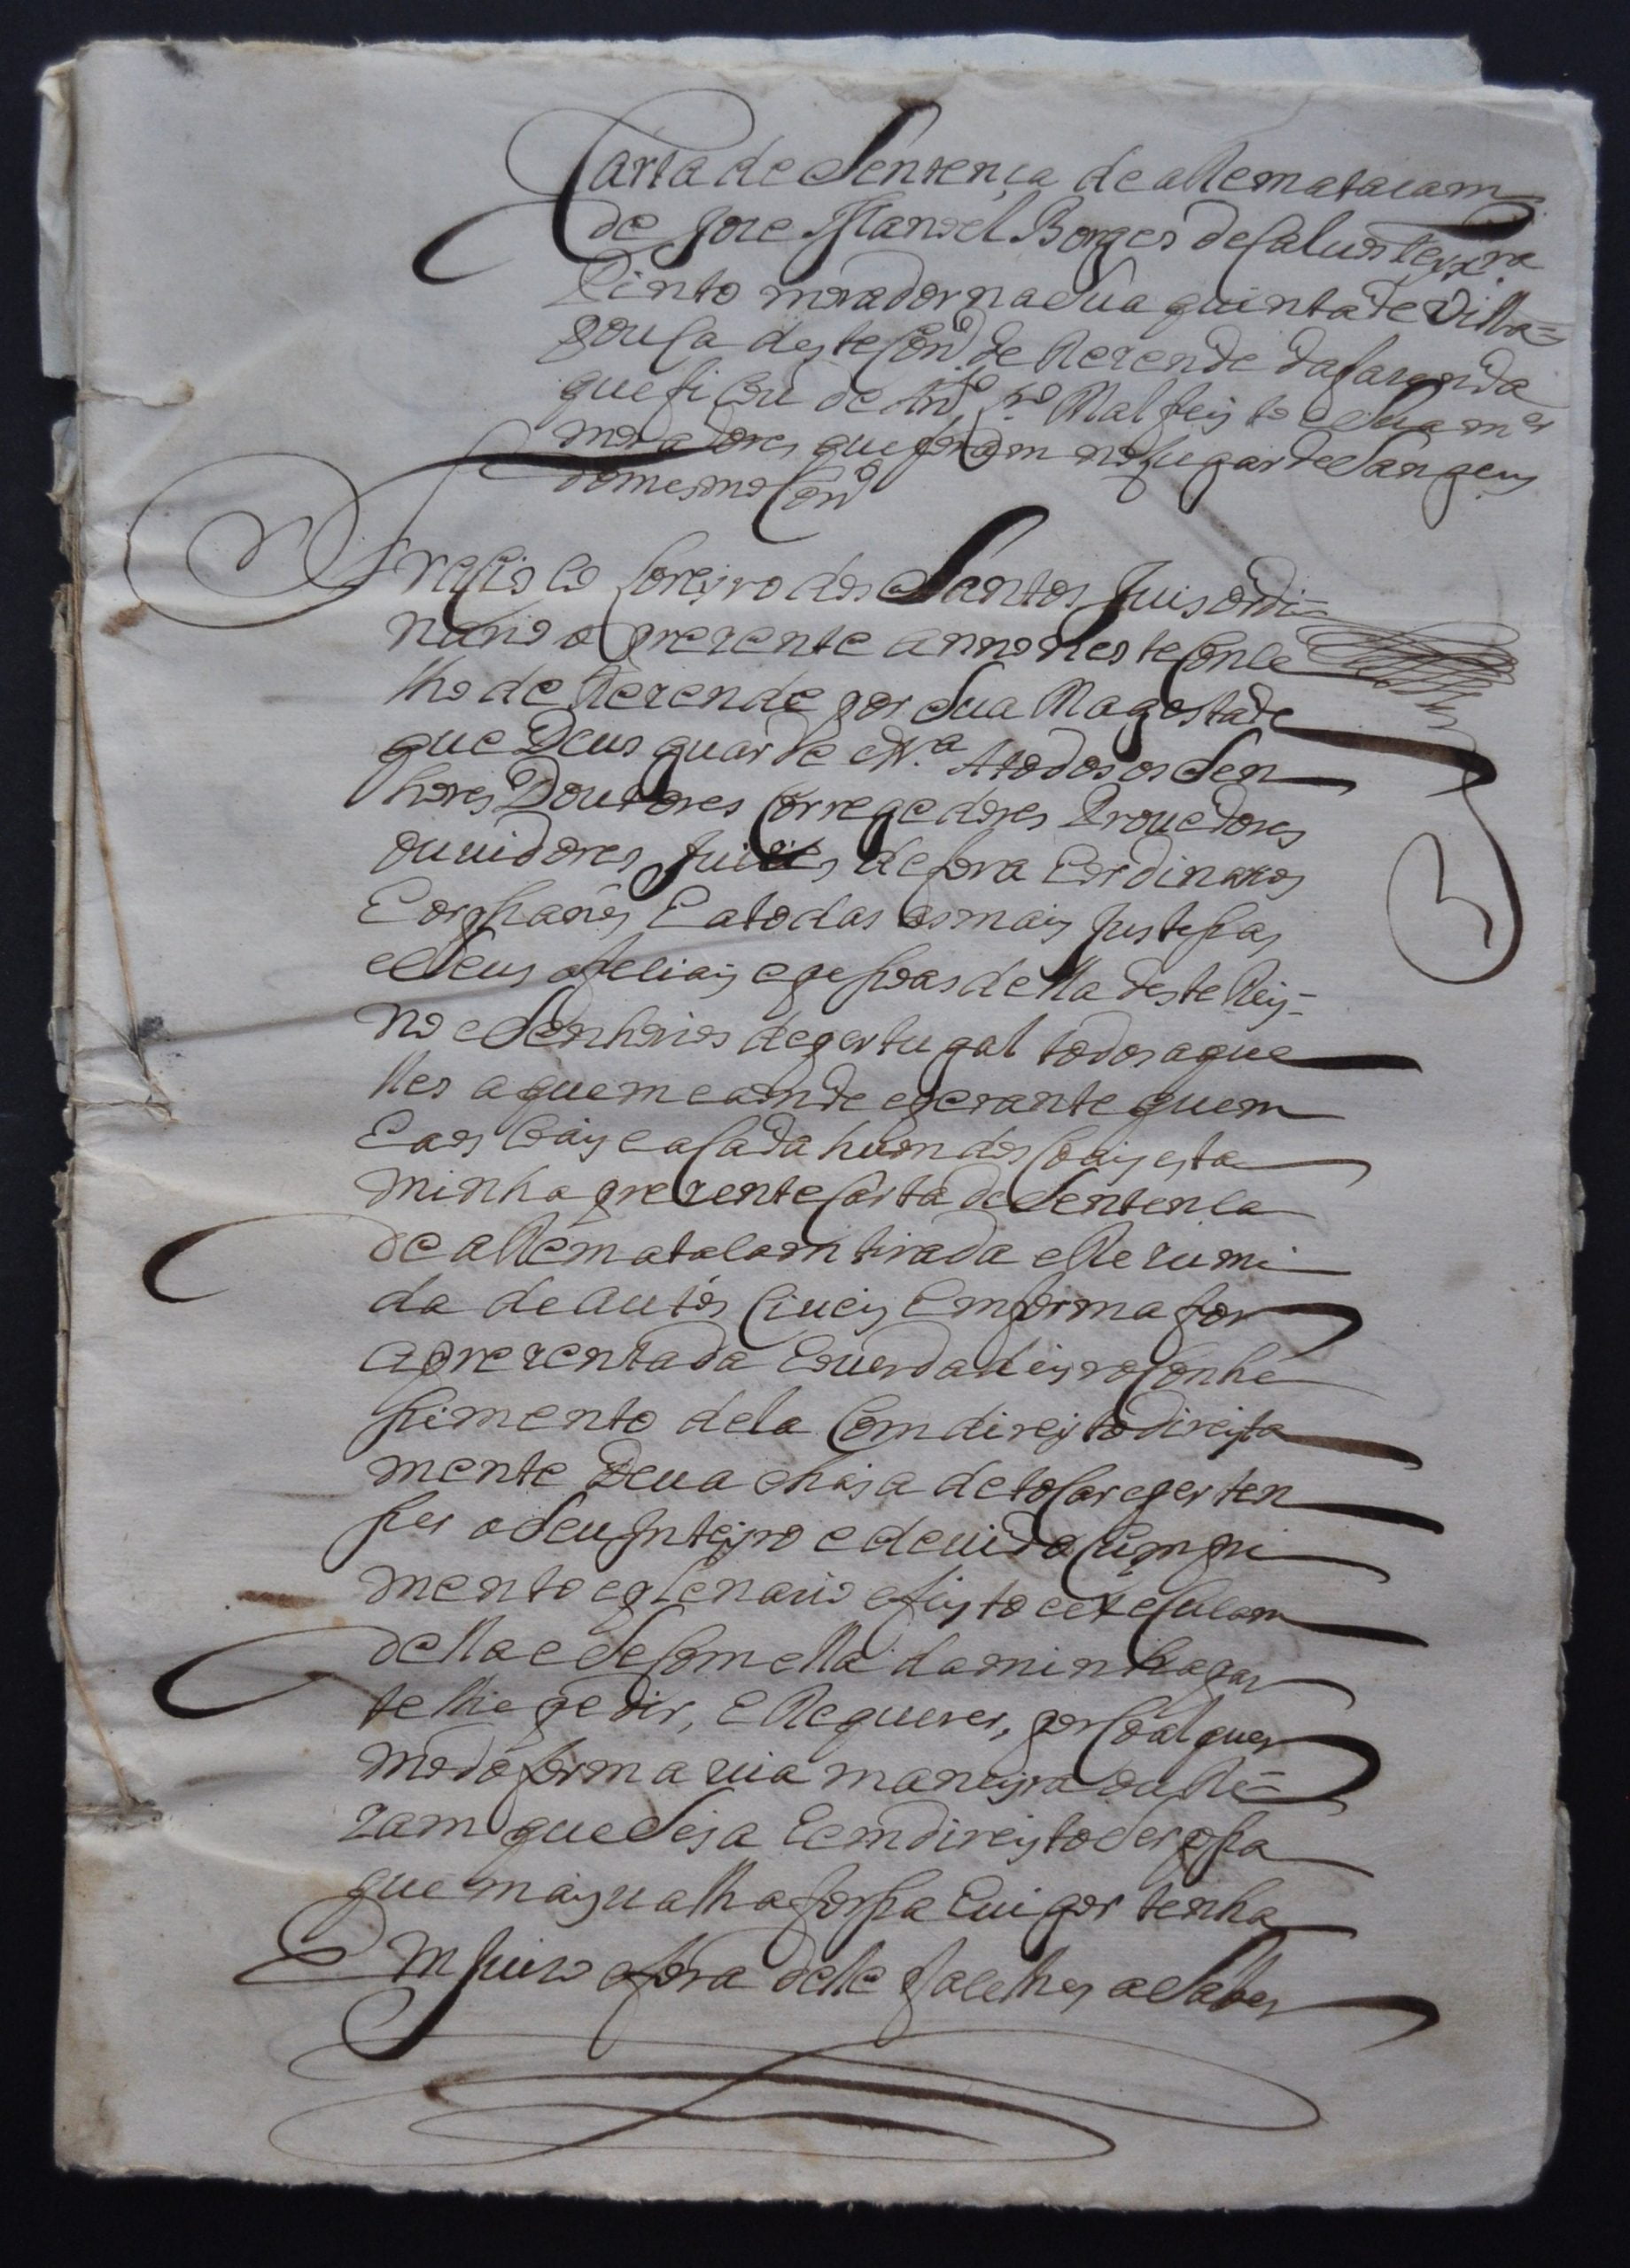 Carta de Sentença de aRematacam
de Joze Manoel Borges de Caluos Teyxra
Pinto morador na Sua quinta de Villa=
pouca deste Conº de Rezende da fazenda
que ficou de Anº Malfeyto e Sua mer
moradores que foram no lugar de Sangens
do mesmo Conº
Francisco Loreyro dos Santos Juis ordi=
nario o prezente anno neste Conce
lho de Rezende por Sua Magestade
que Deus guarde etc.ª A todos os Sen
hores Doutores Corregedores Prouedores
ouuidores Juizes de fora Eordinarios
E orphanos E a todas as mais Justisas
e Seus ofeciais e pesoas della deste Rey=
no e Senhorios de portugal todos aque
lles a quem e aonde e perante quem
E aos Coais e a Cada hum dos Coais esta
minha prezente Carta de Sentenca
de aRematacam tirada e Rezumi
da de autos Ciueis Em forma for
aprezentada E o uerdadeyro Conhe
simento dela Com direyto direyta
mente Deua e haja de tocar e perten
ser o Seu Inteyro e deuido Cumpri
mento e plenario efeyto e execucam
della e Se Com ella da minha par
te lhe pedir, E Requerer, por Coalquer
modo forma uia maneyra ou Re=
zam que Seja E em direyto Ser possa
que mais ualha forsa E uigor tenha
Em Juizo e fora delle faco lhes a Saber